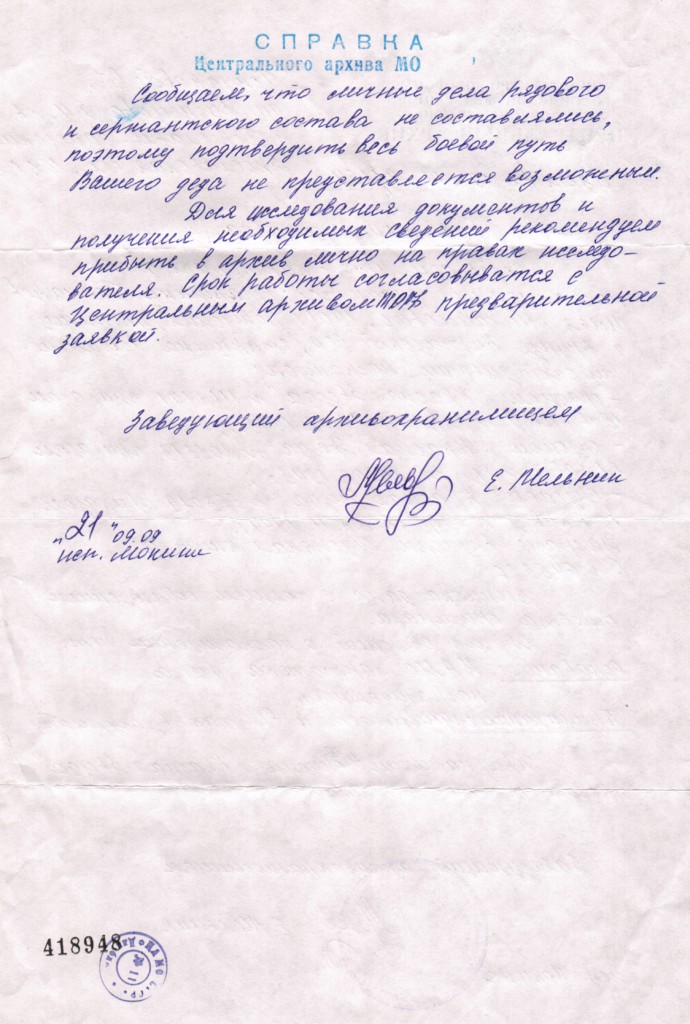 СПРАВКА
Центрального архива МО
Сообщаем, что личные дела рядового
и сержантского состава не составлялись,
поэтому подтвердить весь боевой путь
Вашего деда не представляется возможным.
Для исследования документов и
получения необходимых сведений рекомендуем
прибыть в архив лично на правах исследо-
вателя. Срок работы согласовыватся с
Центральным архивом предварительной
заявкой.
Заведующий архивохранилищем
Е. Мельник
"21" 09.09
исп.
418948